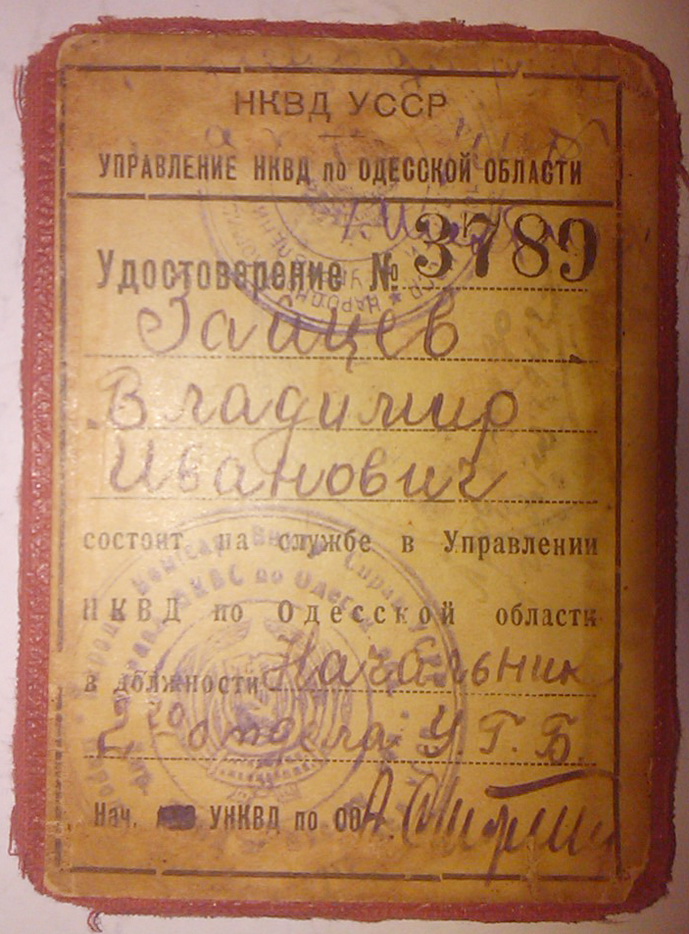 НКВД УССР
УПРАВЛЕНИЕ НКВД по ОДЕССКОЙ ОБЛАСТИ
Удостоверение № 3789
Зайцев
Владимир
Иванович
состоит на службе в Управлении
НКВД по Одесской области
в должности Начальник
2го отдела У.Г.Б.
Нач. УНКВД по ОО